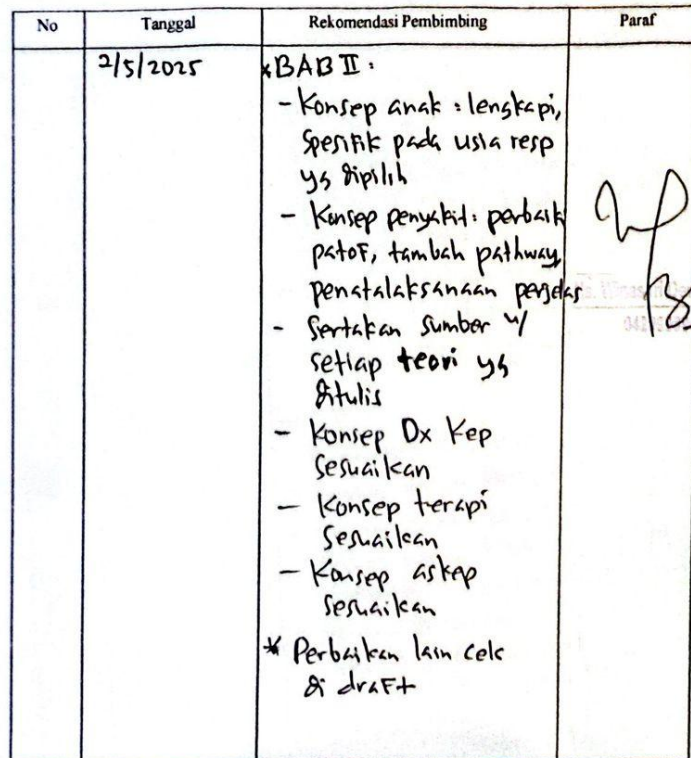 No Tanggal Rekomendasi Pembimbing Paraf
2/5/2025 *BAB II :
- Konsep anak : lengkapi,
spesifik pada usia resp
yg dipilih
- Konsep penyakit : perbaik
patof, tambah pathway,
penatalaksanaan perjelas
- Sertakan sumber u/
setiap teori yg
ditulis
- Konsep Dx Kep
sesuaikan
- Konsep terapi
sesuaikan
- Konsep askep
sesuaikan
* Perbaikan lain cek
di draft